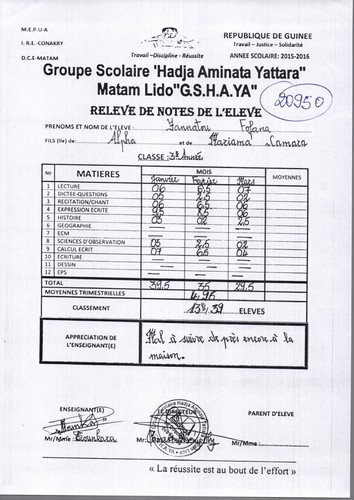 M.E.P.U-A
REPUBLIQUE DE GUINEE
I. R.E.-CONAKRY
Travail – Justice – Solidarité
D.C.E-MATAM
Travail –Discipline - Réussite
ANNEE SCOLAIRE: 2015-2016
Groupe Scolaire 'Hadja Aminata Yattara"
Matam Lido"G.S.H.A.YA"
20950
RELEVE DE NOTES DE L'ELEVE
PRENOMS ET NOM DE L'ELEVE : Fofana
FILS (lle) de: Alpha et de Mariama Camara
CLASSE : 3e Année
No MATIERES MOIS MOYENNES
Janvier Février Mars
1 LECTURE 06 6,5 07
2 DICTEE-QUESTIONS 2,5 02
3 RECITATION/CHANT 06 6,5 06
4 EXPRESSION ECRITE 8,5 06
5 HISTOIRE 03 02 2,5
6 GEOGRAPHIE — — —
7 ECM — — —
8 SCIENCES D'OBSERVATION 03 2,5 02
9 CALCUL ECRIT 07 6,5 04
10 ECRITURE — — —
11 DESSIN — — —
12 EPS — — —
TOTAL 39,5 35 29,5
MOYENNES TRIMESTRIELLES 4,95
CLASSEMENT 13e/39 ELEVES
APPRECIATION DE
L'ENSEIGNANT(E)
Mal à suivre de près encore à la
maison.
ENSEIGNANT(E) LE DIRECTEUR PARENT D'ELEVE
Mr/Mme : Mr/Mme:
« La réussite est au bout de l'effort »